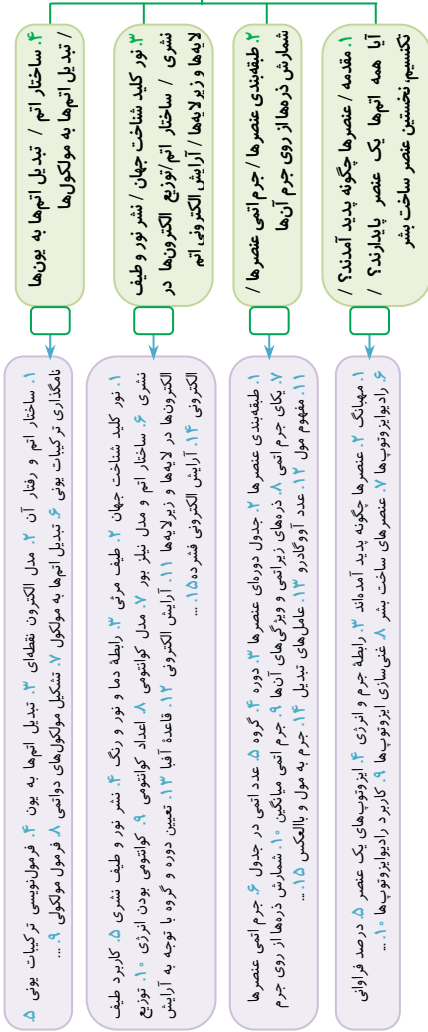 ۱. مقدمه / عنصرها چگونه پدید آمدند؟ /
آیا همه اتم‌ها یک عنصر پایدارند؟ /
تکنسیم، نخستین عنصر ساخت بشر
۱. مهبانگ ۲. عنصرها چگونه پدید آمده‌اند ۳. رابطۀ جرم و انرژی ۴. ایزوتوپ‌های یک عنصر ۵. درصد فراوانی
۶. رادیوایزوتوپ‌ها ۷. عنصرهای ساخت بشر ۸. غنی‌سازی ایزوتوپ‌ها ۹. کاربرد رادیوایزوتوپ‌ها ۱۰. ...
۲. طبقه‌بندی عنصرها / جرم اتمی عنصرها /
شمارش ذره‌ها از روی جرم آن‌ها
۱. طبقه‌بندی عنصرها ۲. جدول دوره‌ای عنصرها ۳. دوره ۴. گروه ۵. عدد اتمی در جدول ۶. جرم اتمی عنصرها
۷. یکای جرم اتمی ۸. ذره‌های زیراتمی و ویژگی‌های آن‌ها ۹. جرم اتمی میانگین ۱۰. شمارش ذره‌ها از روی جرم
۱۱. مفهوم مول ۱۲. عدد آووگادرو ۱۳. عامل‌های تبدیل ۱۴. جرم به مول و بالعکس ۱۵. ...
۳. نور کلید شناخت جهان / نشر نور و طیف
نشری / ساختار اتم/توزیع الکترون‌ها در
لایه‌ها و زیرلایه‌ها / آرایش الکترونی اتم
۱. نور کلید شناخت جهان ۲. طیف مرئی ۳. رابطۀ دما و نور و رنگ ۴. نشر نور و طیف نشری ۵. کاربرد طیف
نشری ۶. ساختار اتم و مدل نیلز بور ۷. مدل کوانتومی ۸. اعداد کوانتومی ۹. کوانتومی بودن انرژی ۱۰. توزیع
الکترون‌ها در لایه‌ها و زیرلایه‌ها ۱۱. آرایش الکترونی ۱۲. قاعدۀ آفبا ۱۳. تعیین دوره و گروه با توجه به آرایش
الکترونی ۱۴. آرایش الکترونی فشرده ۱۵. ...
۴. ساختار اتم / تبدیل اتم‌ها به یون‌ها
/ تبدیل اتم‌ها به مولکول‌ها
۱. ساختار اتم و رفتار آن ۲. مدل الکترون نقطه‌ای ۳. تبدیل اتم‌ها به یون ۴. فرمول‌نویسی ترکیبات یونی ۵.
نامگذاری ترکیبات یونی ۶. تبدیل اتم‌ها به مولکول ۷. تشکیل مولکول‌های دواتمی ۸. فرمول مولکولی ۹. ...